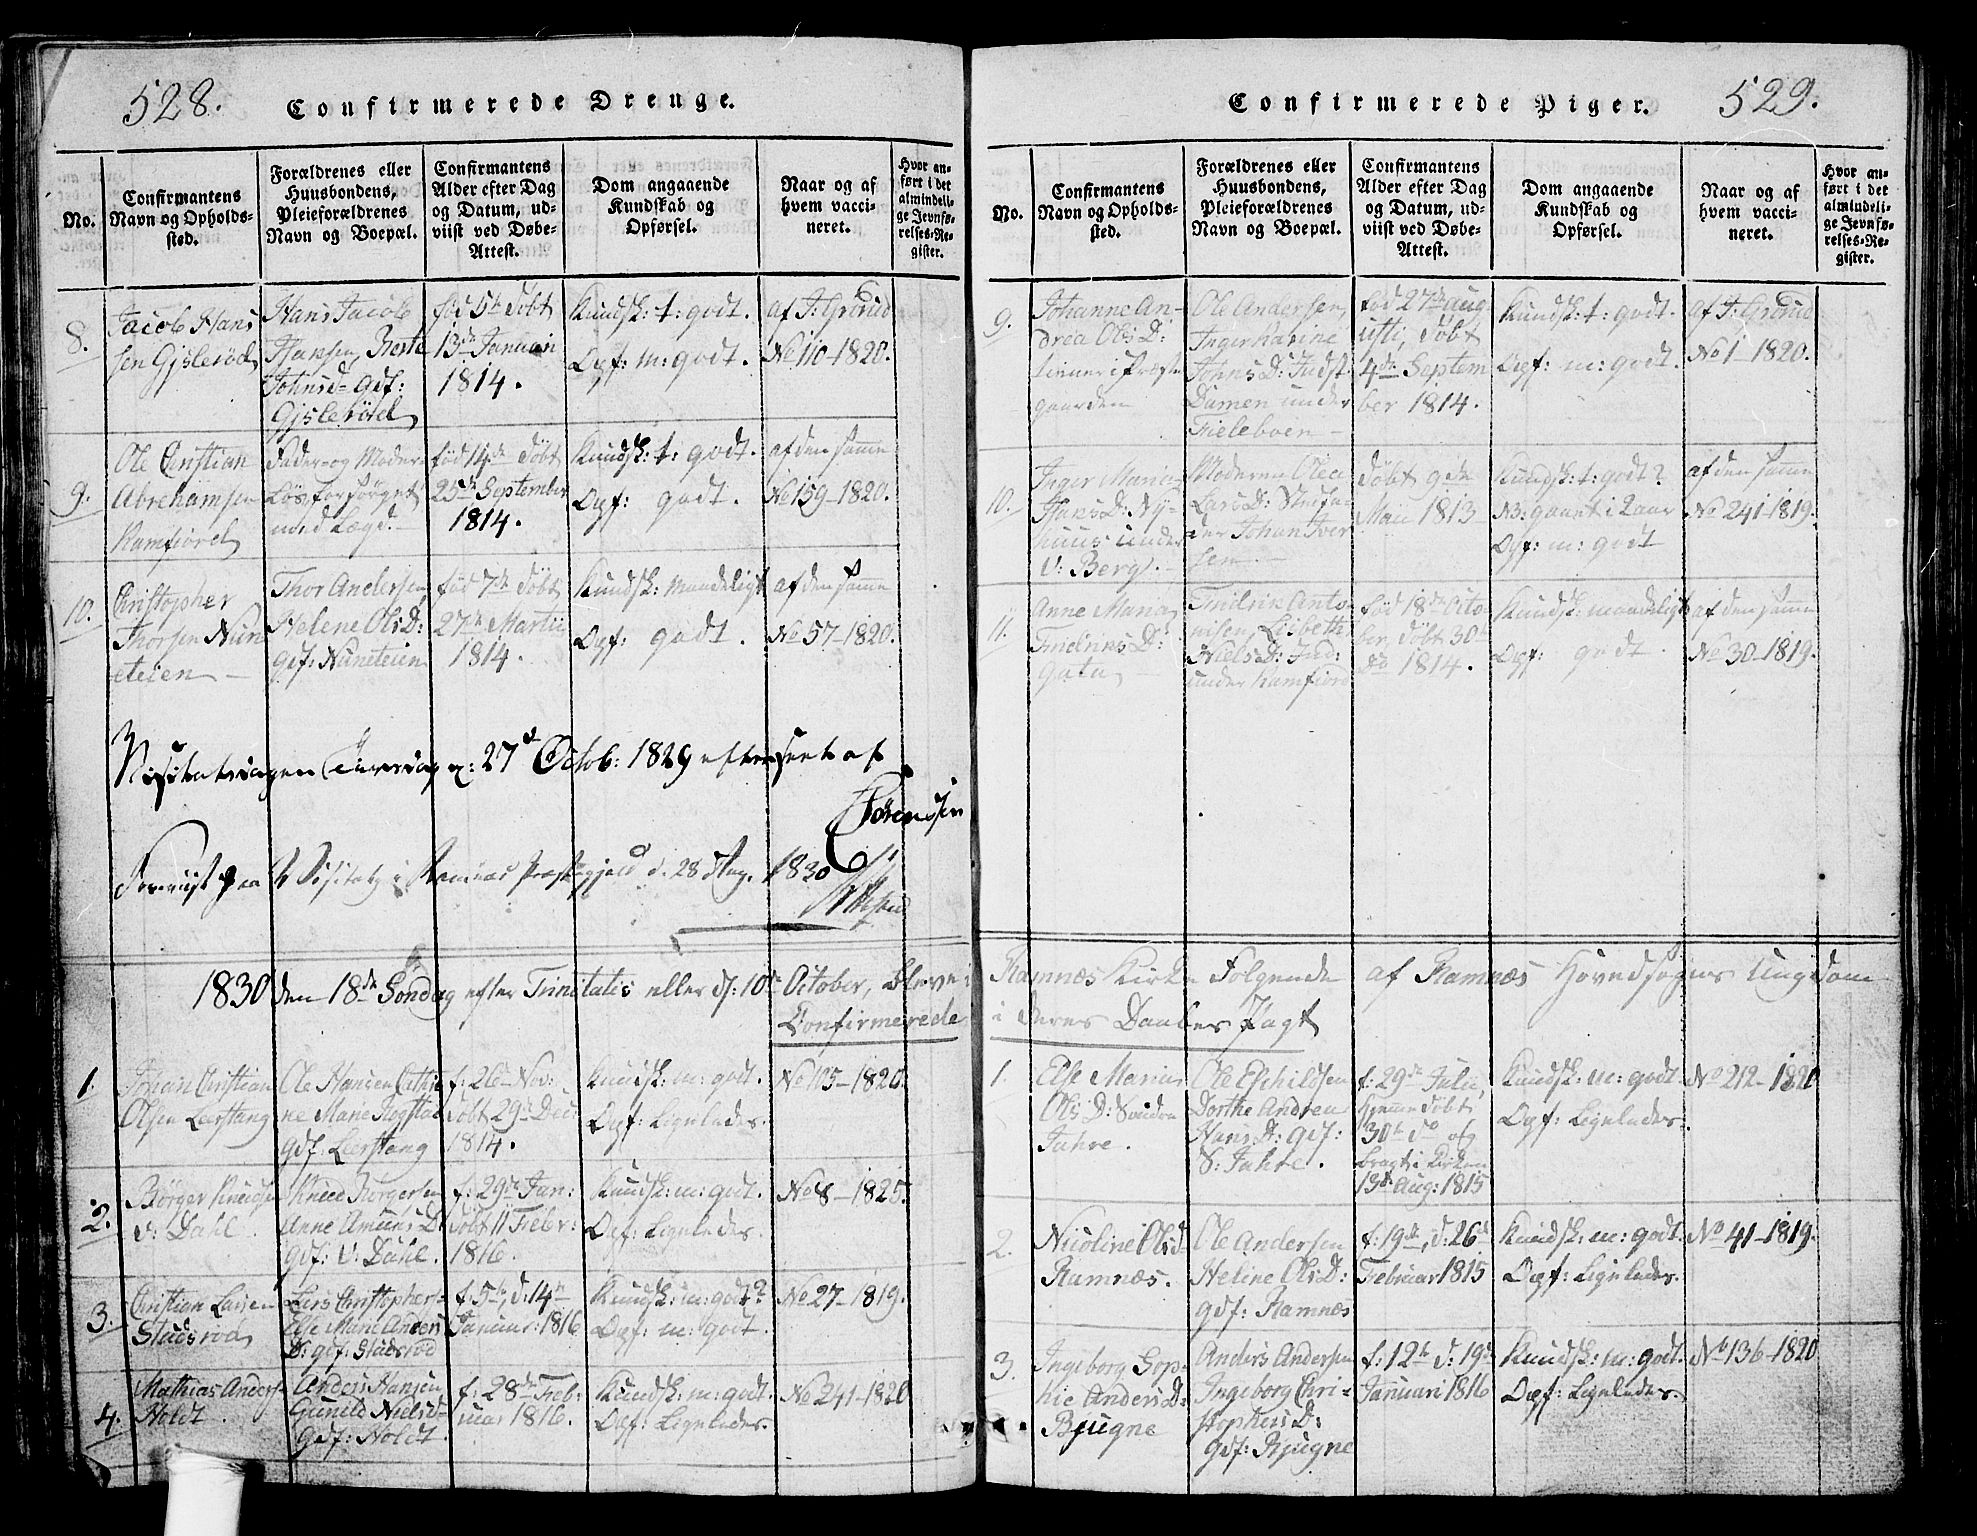 528.
Confirmerede Drenge.
No.
Confirmantens
Navn og Opholds-
sted.
Forældrenes eller
Huusbondens,
Pleieforældrenes
Navn og Boepæl.
Confirmantens
Alder efter Dag
og Datum, ud-
viist ved Døbe-
Attest.
Dom angaaende
Kundskab og
Opførsel.
Naar og af
hvem vacci-
neret.
Hvor an-
ført i det
almindeli-
ge Jevnfø-
relses-Re-
gister.
8.
Jacob Han-
sen Gjslerød
Hans Jacob
Hansen, Berte
Johnsd= gdf:
Gjslerød
fød 5te døbt
13de Januari
1814.
Kundsk: t: godt.
Opf: m: godt.
af J: Grørud
No 110-1820.
9.
Ole Christian
Abrahamsen
Ramfiord
Fader- og Moder-
løs forsørget
med Lægd.
fød 14de døbt
25de September
1814.
Kundsk: t: godt.
Opf: godt.
af den samme
No 159-1820.
10.
Christopher
Thorsen Nun-
eteien
Thor Andersen
Helene Ols D:
gdf: Nuneteien
fød 7de døbt
27de Martii
1814.
Kundsk: maadeligt
Opf: godt.
af den samme
No 57-1820.
Visitatsdagen Tirsdag d: 27de Octob: 1829 efterseet af
Sørenssen
Foreviist paa Visitats i Ramnæs Præstegjeld d. 28 Aug. 1830
1830 den 18de Søndag efter Trinitatis eller d: 10de October, bleve i
Confirmerede
1.
Johan Christian
Olsen Lerstang
Ole Hansen Cathri-
ne Marie Rogstad
gdf. Lerstang
f: 26de Nov:
døbt 29de Dec:
1814.
Kundsk: m: godt.
Opf: Ligeledes.
No 105-1820.
2.
Børger Knudsen
v: Dahl.
Knud Børgersen
Anne Amunds D:
gdf: v: Dahl.
f: 29de Jan:
døbt 11 Febr:
1816.
Kundsk: m: godt.
Opf: Ligeledes.
No 8-1825.
3.
Christian Larsen
Stuesrød
Lars Christophers=
Else Marie Anders
D: gdf: Stuesrød
f: 5te, d: 14de
Januar: 1816
Kundsk: m: godt?
Opf: m: godt.
No 27-1819.
4.
Mathias Anders-
Holdt.
Anders Hansen
Gunild Nielsd=
gdf: Holdt.
f: 28de Feb-
ruar 1816.
Kundsk: m: godt
Opf: Ligeledes.
No 241-1820
529.
Confirmerede Piger.
No.
Confirmantens
Navn og Opholds-
sted.
Forældrenes eller
Huusbondens,
Pleieforældrenes
Navn og Boepæl.
Confirmantens
Alder efter Dag
og Datum, ud-
viist ved Døbe-
Attest.
Dom angaaende
Kundskab og
Opførsel.
Naar og af
hvem vacci-
neret.
Hvor an-
ført i det
almindeli-
ge Jevnfø-
relses-Re-
gister.
9.
Johanne An-
drea Ols D:
tiener i Præste-
gaarden
Ole Andersen,
Inger Karine
Johns D: Indst.
Damen under
Fieleboen
fød 27de Aug-
usti, døbt
4de Septem-
ber 1814.
Kundsk: t: godt.
Opf: m: godt.
af J: Grørud
No 1-1820.
10.
Inger Maria
Hans D: Ny-
huus under
v: Berg.
Moderen Olea
Lars D: Stiffa-
der Johan Iver-
sen
døbt 9de
Maii 1813
Kundsk: t: godt?
NB: gaaet i 2 aar
Opf: m: godt
af den samme
No 241-1819.
11.
Anne Maria
Fridrics D:
Gata
Fridrik Anto-
nisen, Lisbeth
Niels D: Ind:
under Ramfiord
fød 18de Octo-
ber, døbt 30te
do 1814.
Kundsk: maadeligt
Opf: godt.
af den samme
No 30-1819.
Ramnæs Kirke Følgende af Ramnæs Hovedsogns Ungdom
i deres Daabes Pagt
1.
Else Marie
Ols D: Søndre
Jahre.
Ole Eschildsen
Dorthe Andrea
Hans D: gdf:
S: Jahre.
f: 29de Julii,
hjemmedøbt
30te do og
bragt i Kirken
13de Aug: 1815
Kundsk: m: godt
Opf: Ligeledes.
No 212-1820
2.
Nicoline Olsd=
Ramnæs.
Ole Andersen
Heline Ols D:
gdf: Ramnæs
f: 19de, d: 26de
Februar 1815
Kundsk: m: godt.
Opf: Ligeledes.
No 41-1819.
3.
Ingeborg Sop-
hie Anders D:
Bjugne
Anders Andersen
Ingeborg Chri-
stophers D:
gdf: Bjugne
f: 12te d: 19de
Januari 1816
Kundsk: m: godt.
Opf: Ligeledes.
No 136-1820